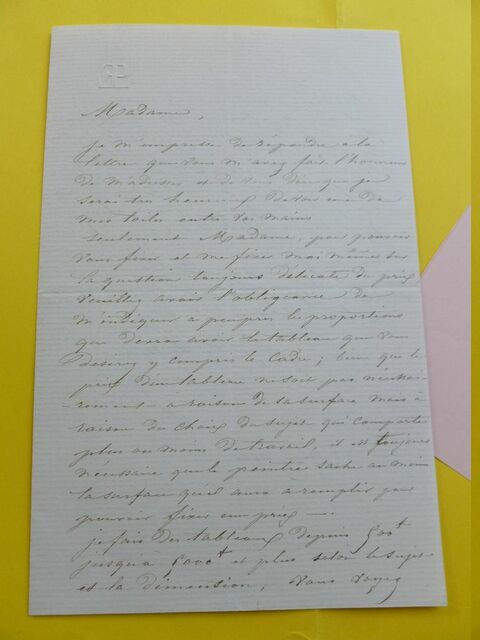 Madame,
je m'empresse de répondre à la
lettre que vous m'avez fait l'honneur
de m'adresser et de vous dire que je
serai très heureux de voir une de
mes toiles entre vos mains
seulement Madame, pour pouvoir
vous fixer et me fixer moi même sur
la question toujours délicate du prix
veuillez avoir l'obligeance de
m'indiquer a peu près les proportions
que devra avoir le tableau que vous
desirez y compris le cadre; bien que le
prix d'un tableau ne soit pas nécessai-
-rement à raison de sa surface mais à
raison du choix du sujet qui comporte
plus ou moins de travail, il est toujours
nécessaire que le peintre sache au moins
la surface qu'il aura a remplir pour
pouvoir fixer un prix —.
je fais des tableaux depuis 500f
jusqu'a 5000f et plus selon le sujet
et la dimension, vous voyez